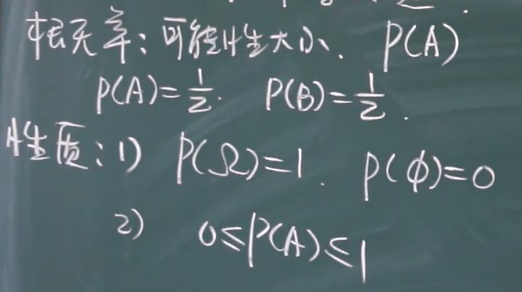 概率：可能性大小. P(A)
P(A)=1/2. P(B)=1/2.
性质：1) P(Ω)=1. P(φ)=0
2) 0≤P(A)≤1